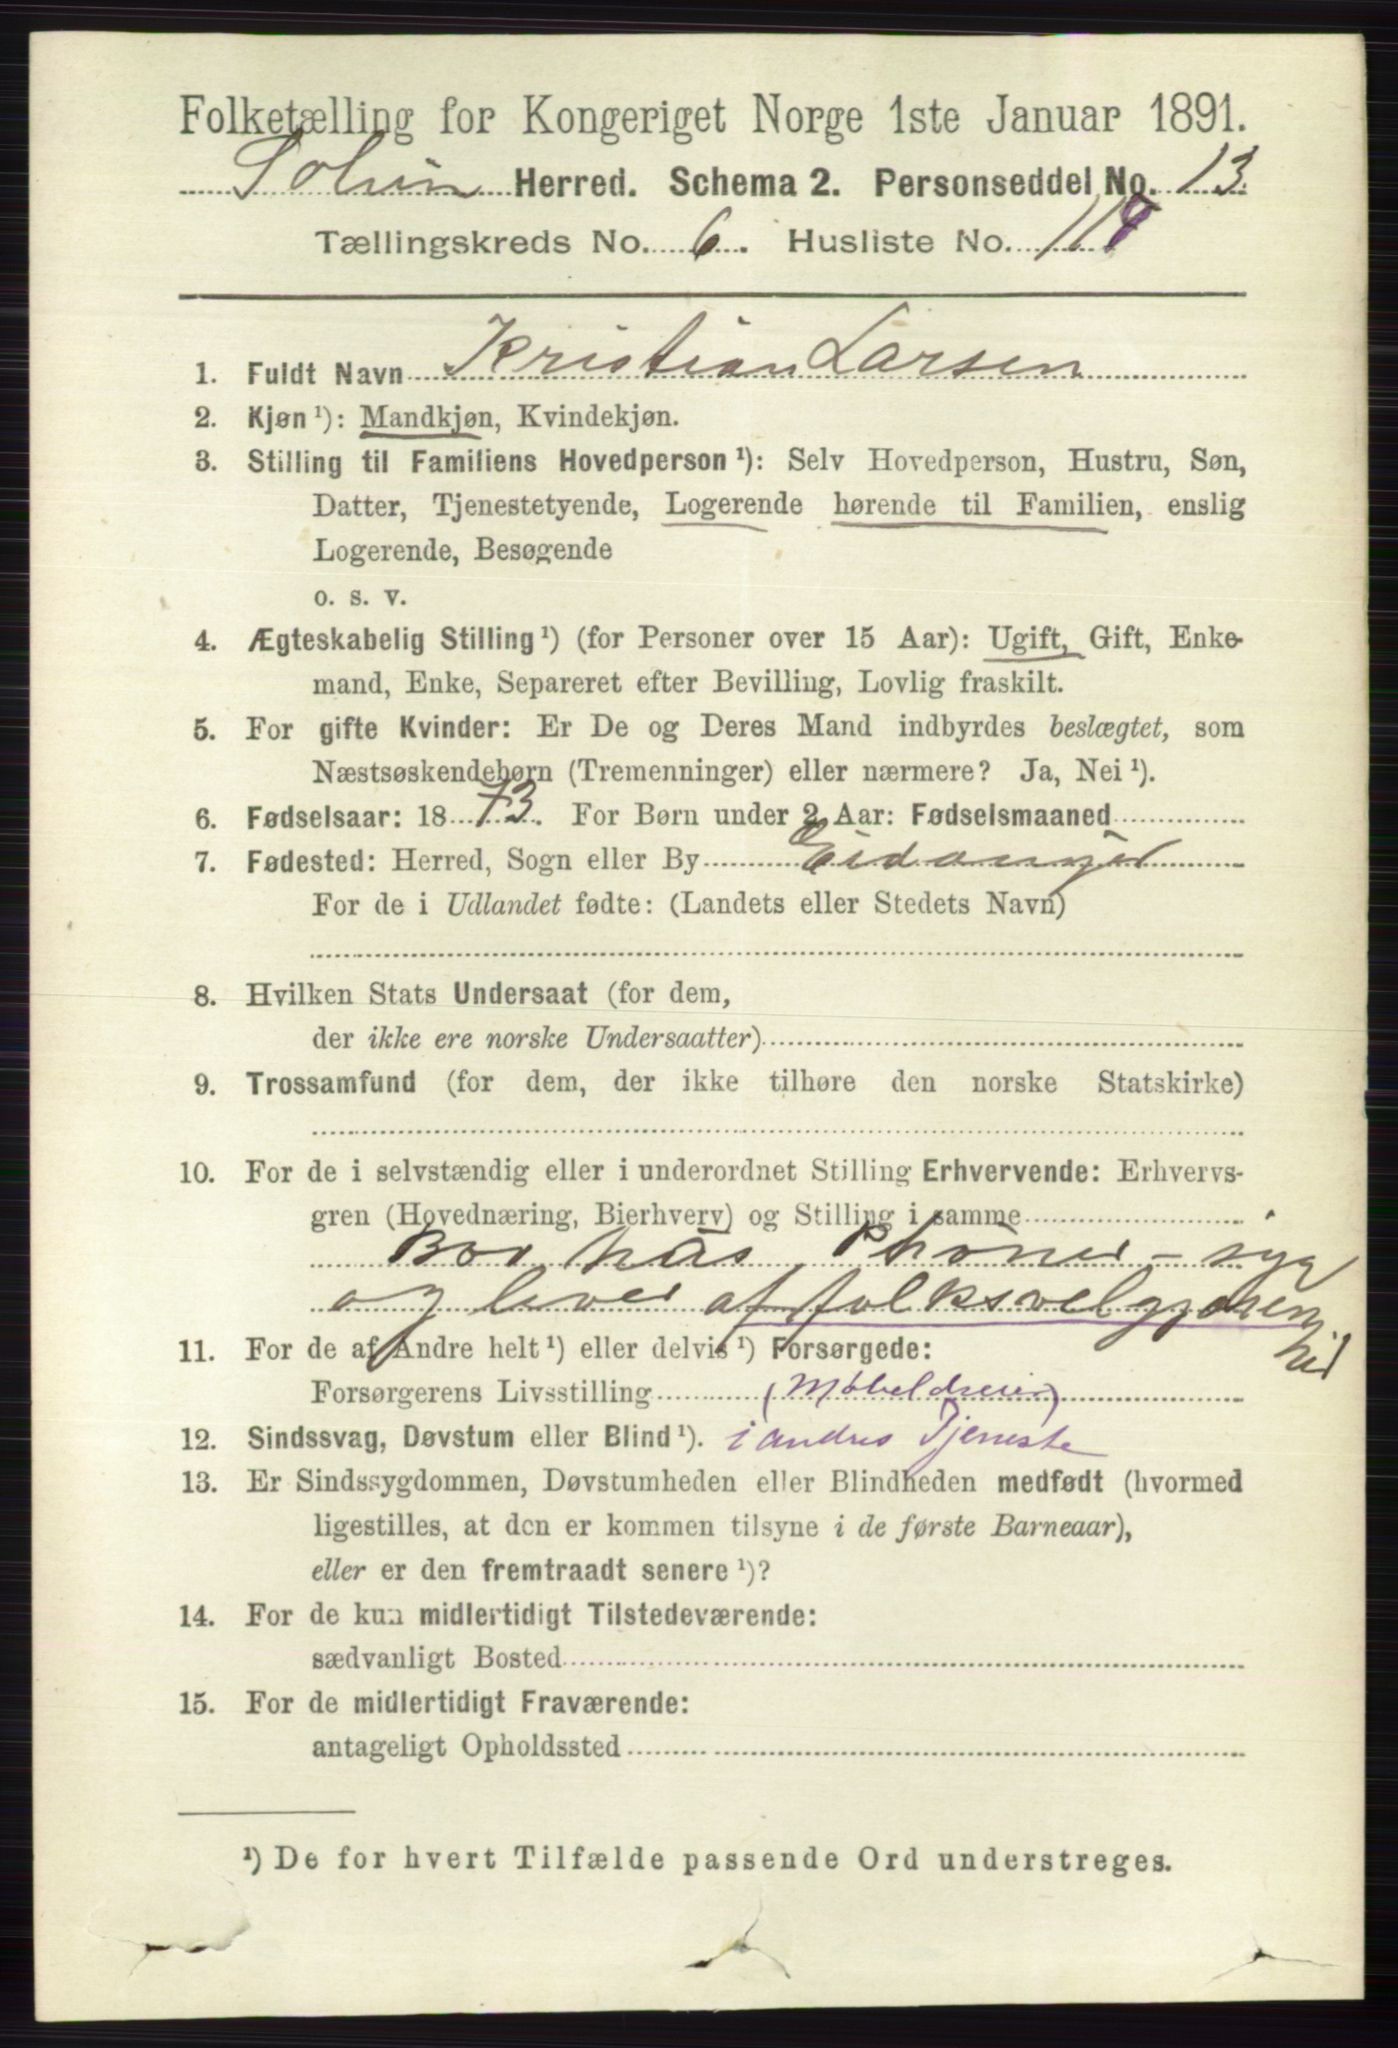 Folketælling for Kongeriget Norge 1ste Januar 1891.
Solum Herred. Schema 2. Personseddel No. 13.
Tællingskreds No. 6. Husliste No. 118
1. Fuldt Navn Kristian Larsen
2. Kjøn ¹): Mandkjøn, Kvindekjøn.
3. Stilling til Familiens Hovedperson ¹): Selv Hovedperson, Hustru, Søn,
Datter, Tjenestetyende, Logerende hørende til Familien, enslig
Logerende, Besøgende
o. s. v.
4. Ægteskabelig Stilling ¹) (for Personer over 15 Aar): Ugift, Gift, Enke-
mand, Enke, Separeret efter Bevilling, Lovlig fraskilt.
5. For gifte Kvinder: Er De og Deres Mand indbyrdes beslægtet, som
Næstsøskendebørn (Tremenninger) eller nærmere? Ja, Nei ¹).
6. Fødselsaar: 18 73. For Børn under 2 Aar: Fødselsmaaned
7. Fødested: Herred, Sogn eller By Eidanger
For de i Udlandet fødte: (Landets eller Stedets Navn)
8. Hvilken Stats Undersaat (for dem,
der ikke ere norske Undersaatter)
9. Trossamfund (for dem, der ikke tilhøre den norske Statskirke)
10. For de i selvstændig eller i underordnet Stilling Erhvervende: Erhvervs-
gren (Hovednæring, Bierhverv) og Stilling i samme
Bor hos syg
og lever af folksvelgjøren
hed
11. For de af Andre helt ¹) eller delvis ¹) Forsørgede:
Forsørgerens Livsstilling (Møbeldreier)
12. Sindssvag, Døvstum eller Blind ¹). i andres Tjeneste
13. Er Sindssygdommen, Døvstumheden eller Blindheden medfødt (hvormed
ligestilles, at den er kommen tilsyne i de første Barneaar),
eller er den fremtraadt senere ¹)?
14. For de kun midlertidigt Tilstedeværende:
sædvanligt Bosted
15. For de midlertidigt Fraværende:
antageligt Opholdssted
¹) De for hvert Tilfælde passende Ord understreges.